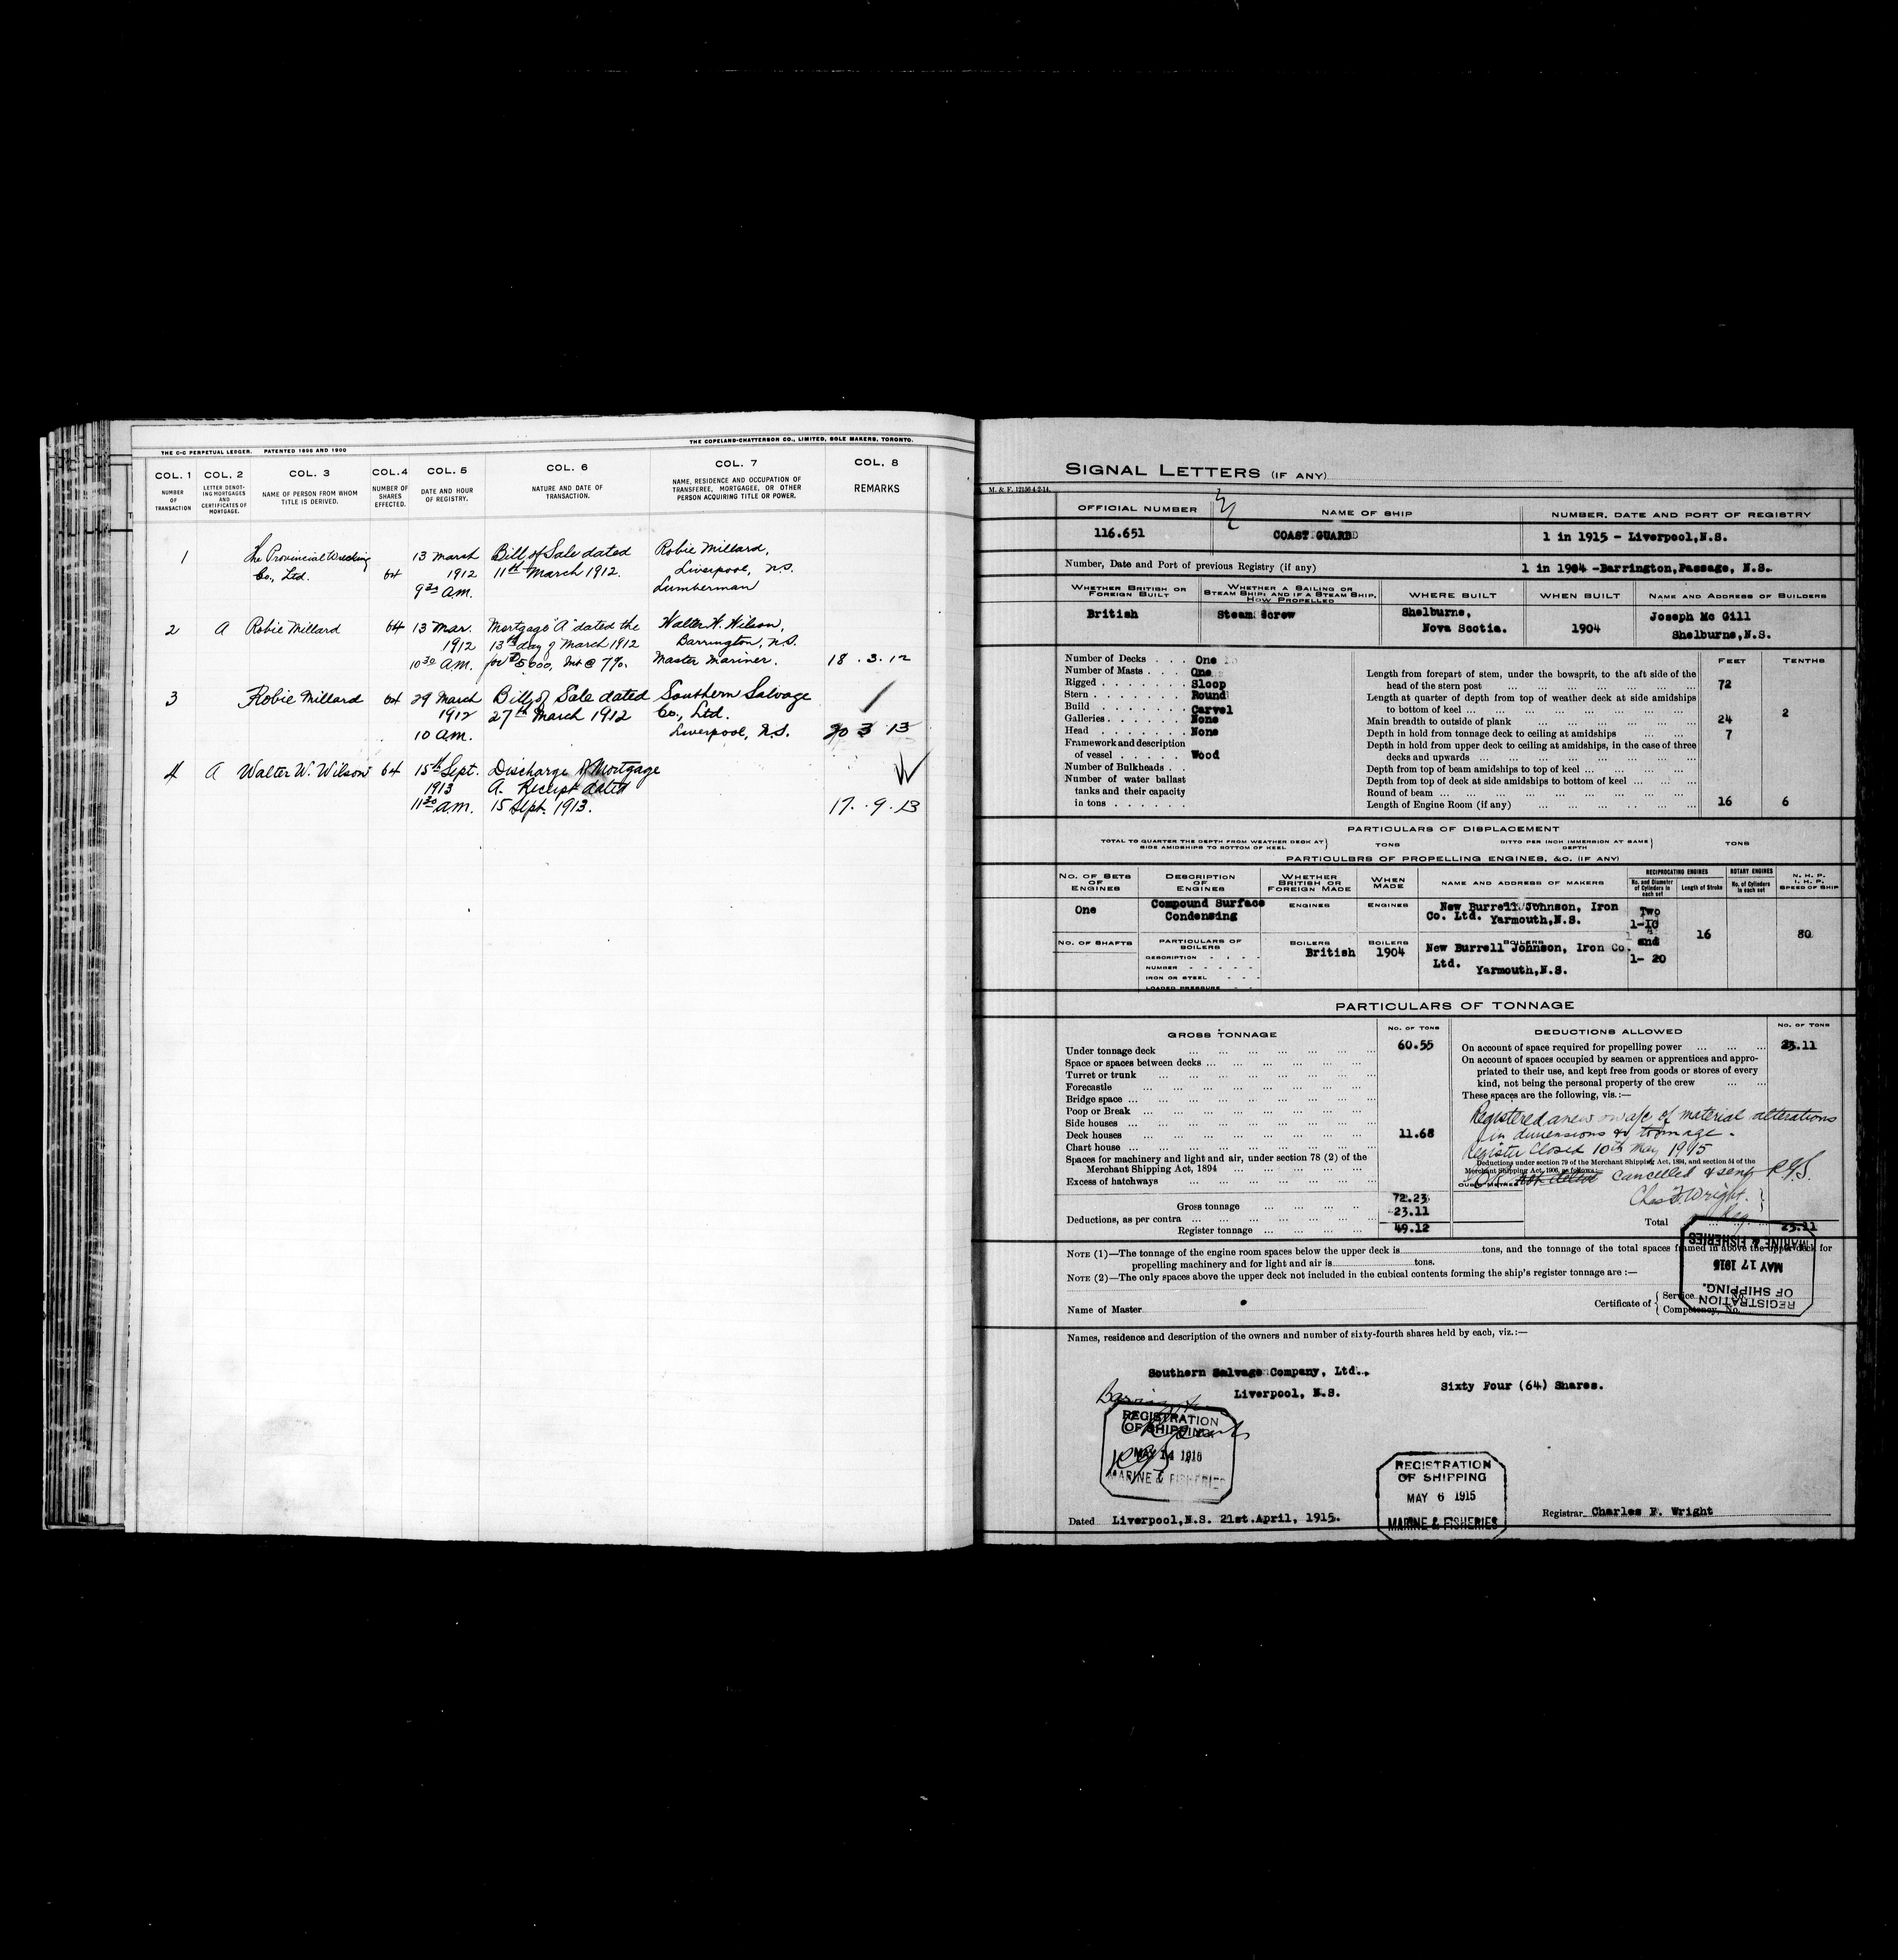 THE C-C PERPETUAL LEDGER. PATENTED 1896 AND 1900
THE COPELAND-CHATTERSON CO., LIMITED, SOLE MAKERS, TORONTO.
COL. 1 COL. 2 COL. 3 COL. 4 COL. 5 COL. 6 COL. 7 COL. 8
NUMBER OF TRANSACTION
LETTER DENOT-ING MORTGAGES AND CERTIFICATES OF MORTGAGE.
NAME OF PERSON FROM WHOM TITLE IS DERIVED.
NUMBER OF SHARES EFFECTED.
DATE AND HOUR OF REGISTRY.
NATURE AND DATE OF TRANSACTION.
NAME, RESIDENCE AND OCCUPATION OF TRANSFEREE, MORTGAGEE, OR OTHER PERSON ACQUIRING TITLE OR POWER.
REMARKS
1 The Provincial Wrecking 13 March Bill of Sale dated Robie Millard,
Co., Ltd. 64 1912 11th March 1912. Liverpool, N.S.
9 30 A.M. Lumberman
2 A Robie Millard 64 13 Mar. Mortgage "A" dated the Walter W. Wilson,
1912 13th day of March 1912 Barrington, N.S.
10 30 A.M. for $5000, Int @ 7%. Master Mariner. 18 . 3 . 12
3 Robie Millard 64 29 March Bill of Sale dated Southern Salvage
1912 27th March 1912 Co., Ltd.
10 A.M. Liverpool, N.S. 3 13
4 A Walter W. Wilson 64 15th Sept. Discharge of Mortgage
1913 A. Receipt dated
11 30 a.m. 15 Sept. 1913. 17 . 9 . 13
SIGNAL LETTERS (IF ANY)
M. & F. 12156-4-2-14.
OFFICIAL NUMBER NAME OF SHIP NUMBER, DATE AND PORT OF REGISTRY
116.651 COAST GUARD 1 in 1915 - Liverpool,N.S.
Number, Date and Port of previous Registry (if any) 1 in 1904 -Barrington,Passage, N.S.
WHETHER BRITISH OR FOREIGN BUILT
WHETHER A SAILING OR STEAM SHIP; AND IF A STEAM SHIP, HOW PROPELLED
WHERE BUILT WHEN BUILT NAME AND ADDRESS OF BUILDERS
British Steam Screw Shelburne, Nova Scotia. 1904 Joseph Mc Gill Shelburne,N.S.
Number of Decks . . . One
Number of Masts . . . One
Rigged . . . . . . . Sloop
Stern . . . . . . . Round
Build . . . . . . . Carvel
Galleries . . . . . . None
Head . . . . . . . None
Framework and description
of vessel . . . . . Wood
Number of Bulkheads . .
Number of water ballast
tanks and their capacity
in tons . . . . . .
FEET TENTHS
Length from forepart of stem, under the bowsprit, to the aft side of the
head of the stern post 72
Length at quarter of depth from top of weather deck at side amidships
to bottom of keel
Main breadth to outside of plank 24 2
Depth in hold from tonnage deck to ceiling at amidships 7
Depth in hold from upper deck to ceiling at amidships, in the case of three
decks and upwards
Depth from top of beam amidships to top of keel
Depth from top of deck at side amidships to bottom of keel
Round of beam
Length of Engine Room (if any) 16 6
PARTICULARS OF DISPLACEMENT
TOTAL TO QUARTER THE DEPTH FROM WEATHER DECK AT SIDE AMIDSHIPS TO BOTTOM OF KEEL } TONS DITTO PER INCH IMMERSION AT SAME DEPTH } TONS
PARTICULBRS OF PROPELLING ENGINES, &C. (IF ANY)
NO. OF SETS OF ENGINES
DESCRIPTION OF ENGINES
WHETHER BRITISH OR FOREIGN MADE
WHEN MADE
NAME AND ADDRESS OF MAKERS
RECIPROCATING ENGINES
No. and Diameter of Cylinders in each set
Length of Stroke
ROTARY ENGINES
No. of Cylinders in each set
N. H. P. I. H. P. SPEED OF SHIP
One Compound Surface Condensing ENGINES ENGINES New Burrell Johnson, Iron Co. Ltd. Yarmouth,N.S. Two 1-10 and 1- 20 16 80
NO. OF SHAFTS
PARTICULARS OF BOILERS
DESCRIPTION
NUMBER
IRON OR STEEL
LOADED PRESSURE
BOILERS British BOILERS 1904 BOILERS New Burrell Johnson, Iron Co. Ltd. Yarmouth,N.S.
PARTICULARS OF TONNAGE
GROSS TONNAGE NO. OF TONS
Under tonnage deck 60.55
Space or spaces between decks
Turret or trunk
Forecastle
Bridge space
Poop or Break
Side houses
Deck houses 11.68
Chart house
Spaces for machinery and light and air, under section 78 (2) of the
Merchant Shipping Act, 1894
Excess of hatchways
Gross tonnage 72.23
Deductions, as per contra 23.11
Register tonnage 49.12
DEDUCTIONS ALLOWED NO. OF TONS
On account of space required for propelling power 23.11
On account of spaces occupied by seamen or apprentices and appro-
priated to their use, and kept free from goods or stores of every
kind, not being the personal property of the crew
These spaces are the following, vis.:—
Registered anew on a/c of material alterations
in dimensions & tonnage.
Register Closed 10th May 1915
Deductions under section 79 of the Merchant Shipping Act, 1894, and section 54 of the
Merchant Shipping Act, 1906, as follows:
Cancelled & sent R.G.S.
Chas F. Wright.
Reg.
Total 23.11
NOTE (1)—The tonnage of the engine room spaces below the upper deck is tons, and the tonnage of the total spaces framed in above the upper deck for
propelling machinery and for light and air is tons.
NOTE (2)—The only spaces above the upper deck not included in the cubical contents forming the ship's register tonnage are :—
REGISTRATION
OF SHIPPING.
MAY 17 1915
MARINE & FISHERIES
Name of Master
Certificate of { Service No.
Competency, No.
Names, residence and description of the owners and number of sixty-fourth shares held by each, viz.:—
Southern Salvage Company, Ltd.,
Liverpool, N.S. Sixty Four (64) Shares.
REGISTRATION
OF SHIPPING
MAY 14 1915
MARINE & FISHERIES
REGISTRATION
OF SHIPPING
MAY 6 1915
MARINE & FISHERIES
Dated Liverpool,N.S. 21st.April, 1915. Registrar Charles F. Wright